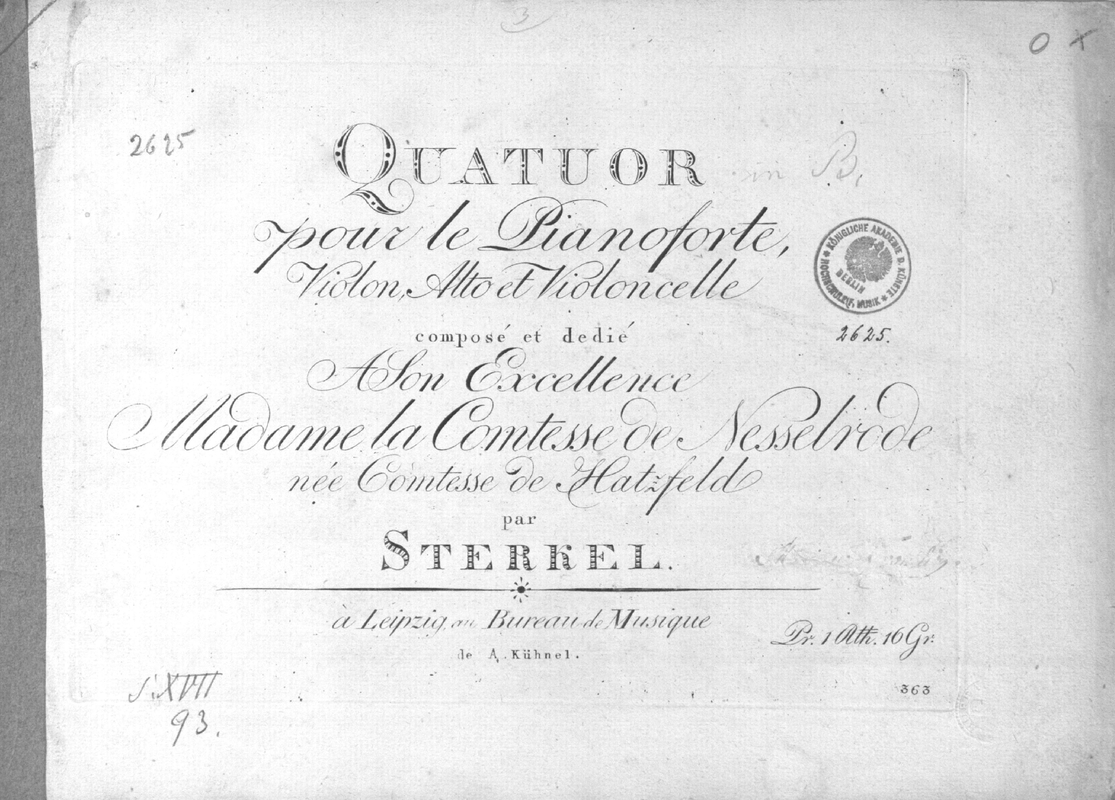 3
O x
2625
QUATUOR
in B.
pour le Pianoforte,
Violon, Alto et Violoncelle
KÖNIGLICHE AKADEMIE D. KÜNSTE * HOCHSCHULE F. MUSIK *
BERLIN
2625.
composé et dedié
A Son Excellence
Madame la Comtesse de Nesselrode
née Comtesse de Hatzfeld
par
STERKEL.
à Leipzig, au Bureau de Musique
de A. Kühnel.
Pr. 1 Rth. 16 Gr.
363
S. XVII
93.